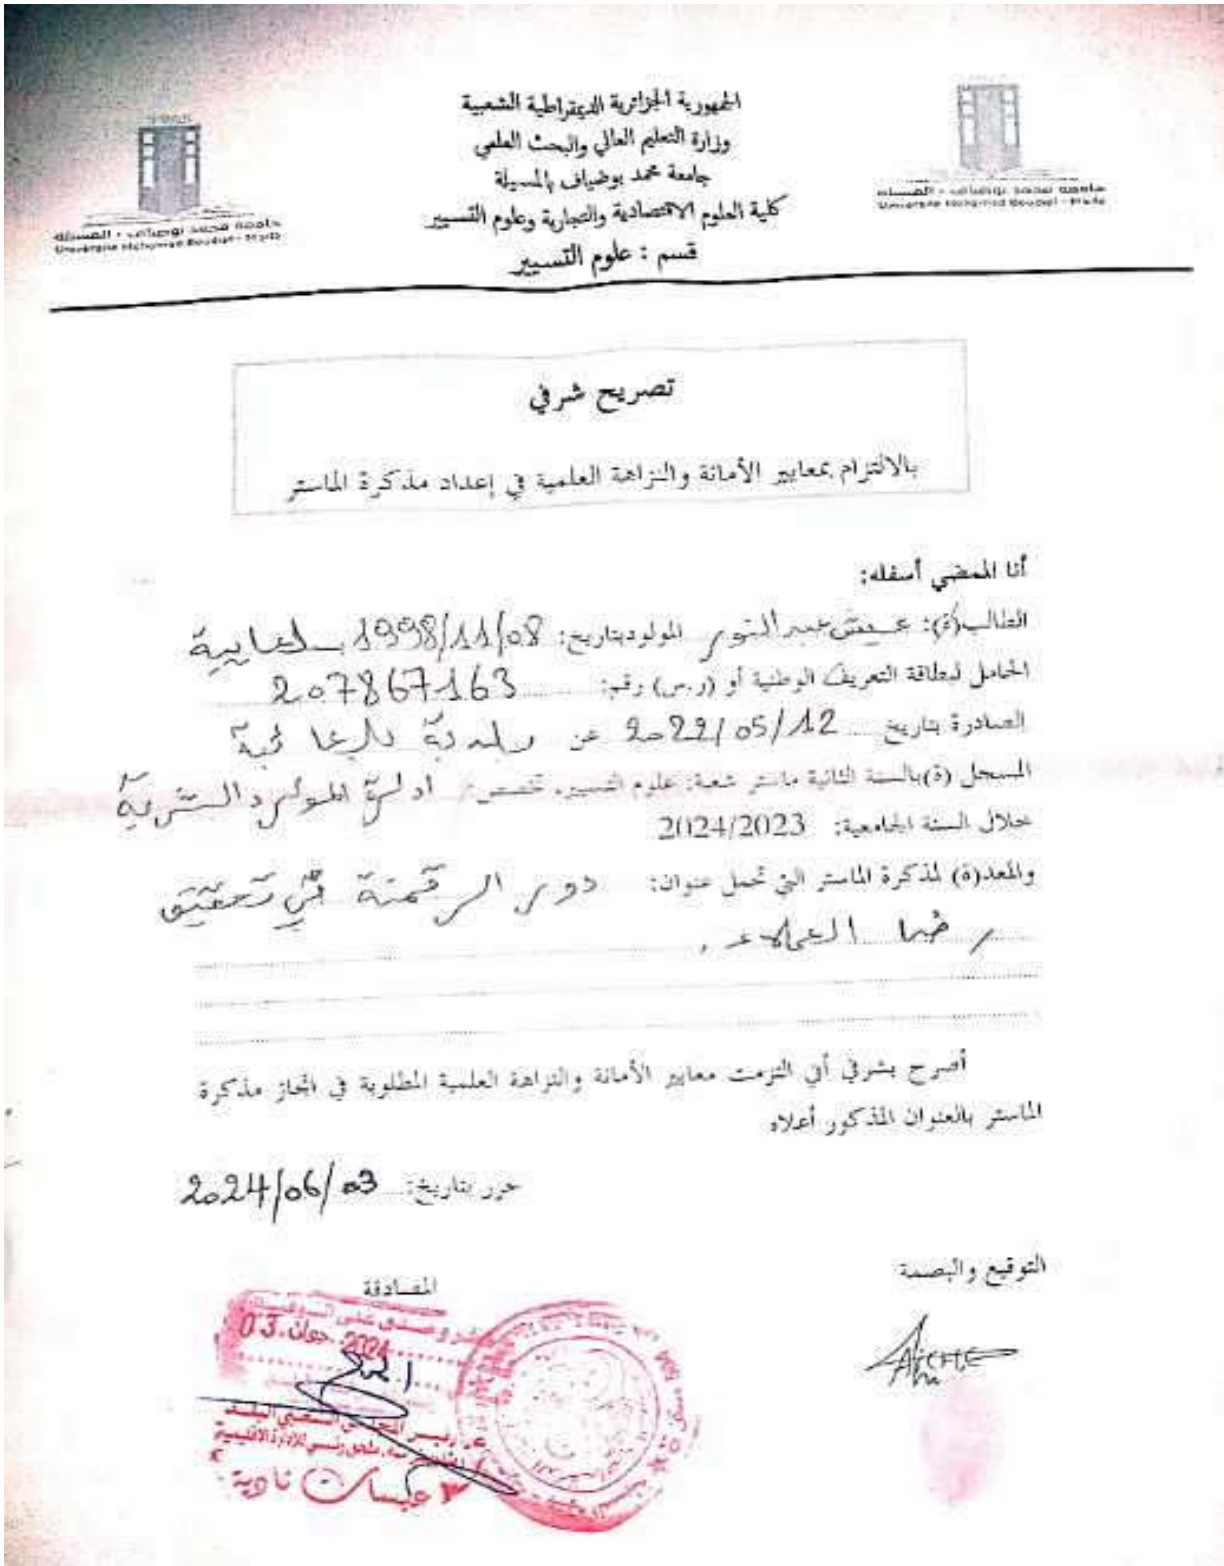 الجمهورية الجزائرية الديمقراطية الشعبية
وزارة التعليم العالي والبحث العلمي
جامعة محمد بوضياف بالمسيلة
كلية العلوم الاقتصادية والتجارية وعلوم التسيير
قسم : علوم التسيير
جامعة محمد بوضياف - المسيلة
Université Mohamed Boudiaf - M'sila
جامعة محمد بوضياف - المسيلة
Université Mohamed Boudiaf - M'sila
تصريح شرفي
بالالتزام بمعايير الأمانة والنزاهة العلمية في إعداد مذكرة الماستر
أنا الممضي أسفله:
الطالب(ة): عيش عبد النور المولود بتاريخ: 1998/11/08
الحامل لبطاقة التعريف الوطنية أو (ر.س) رقم: 207867163
الصادرة بتاريخ 2022/05/12 عن بلدية
المسجل (ة) بالسنة الثانية ماستر شعبة: علوم التسيير. تخصص: ادارة الموارد البشرية
خلال السنة الجامعية: 2024/2023
والمعد(ة) لمذكرة الماستر التي تحمل عنوان: دور الرقمنة في تحقيق
رضا العملاء.
أصرح بشرفي أني التزمت معايير الأمانة والنزاهة العلمية المطلوبة في انجاز مذكرة
الماستر بالعنوان المذكور أعلاه
حرر بتاريخ: 2024/06/03
التوقيع والبصمة
المصادقة
03 جوان 2024
نادية